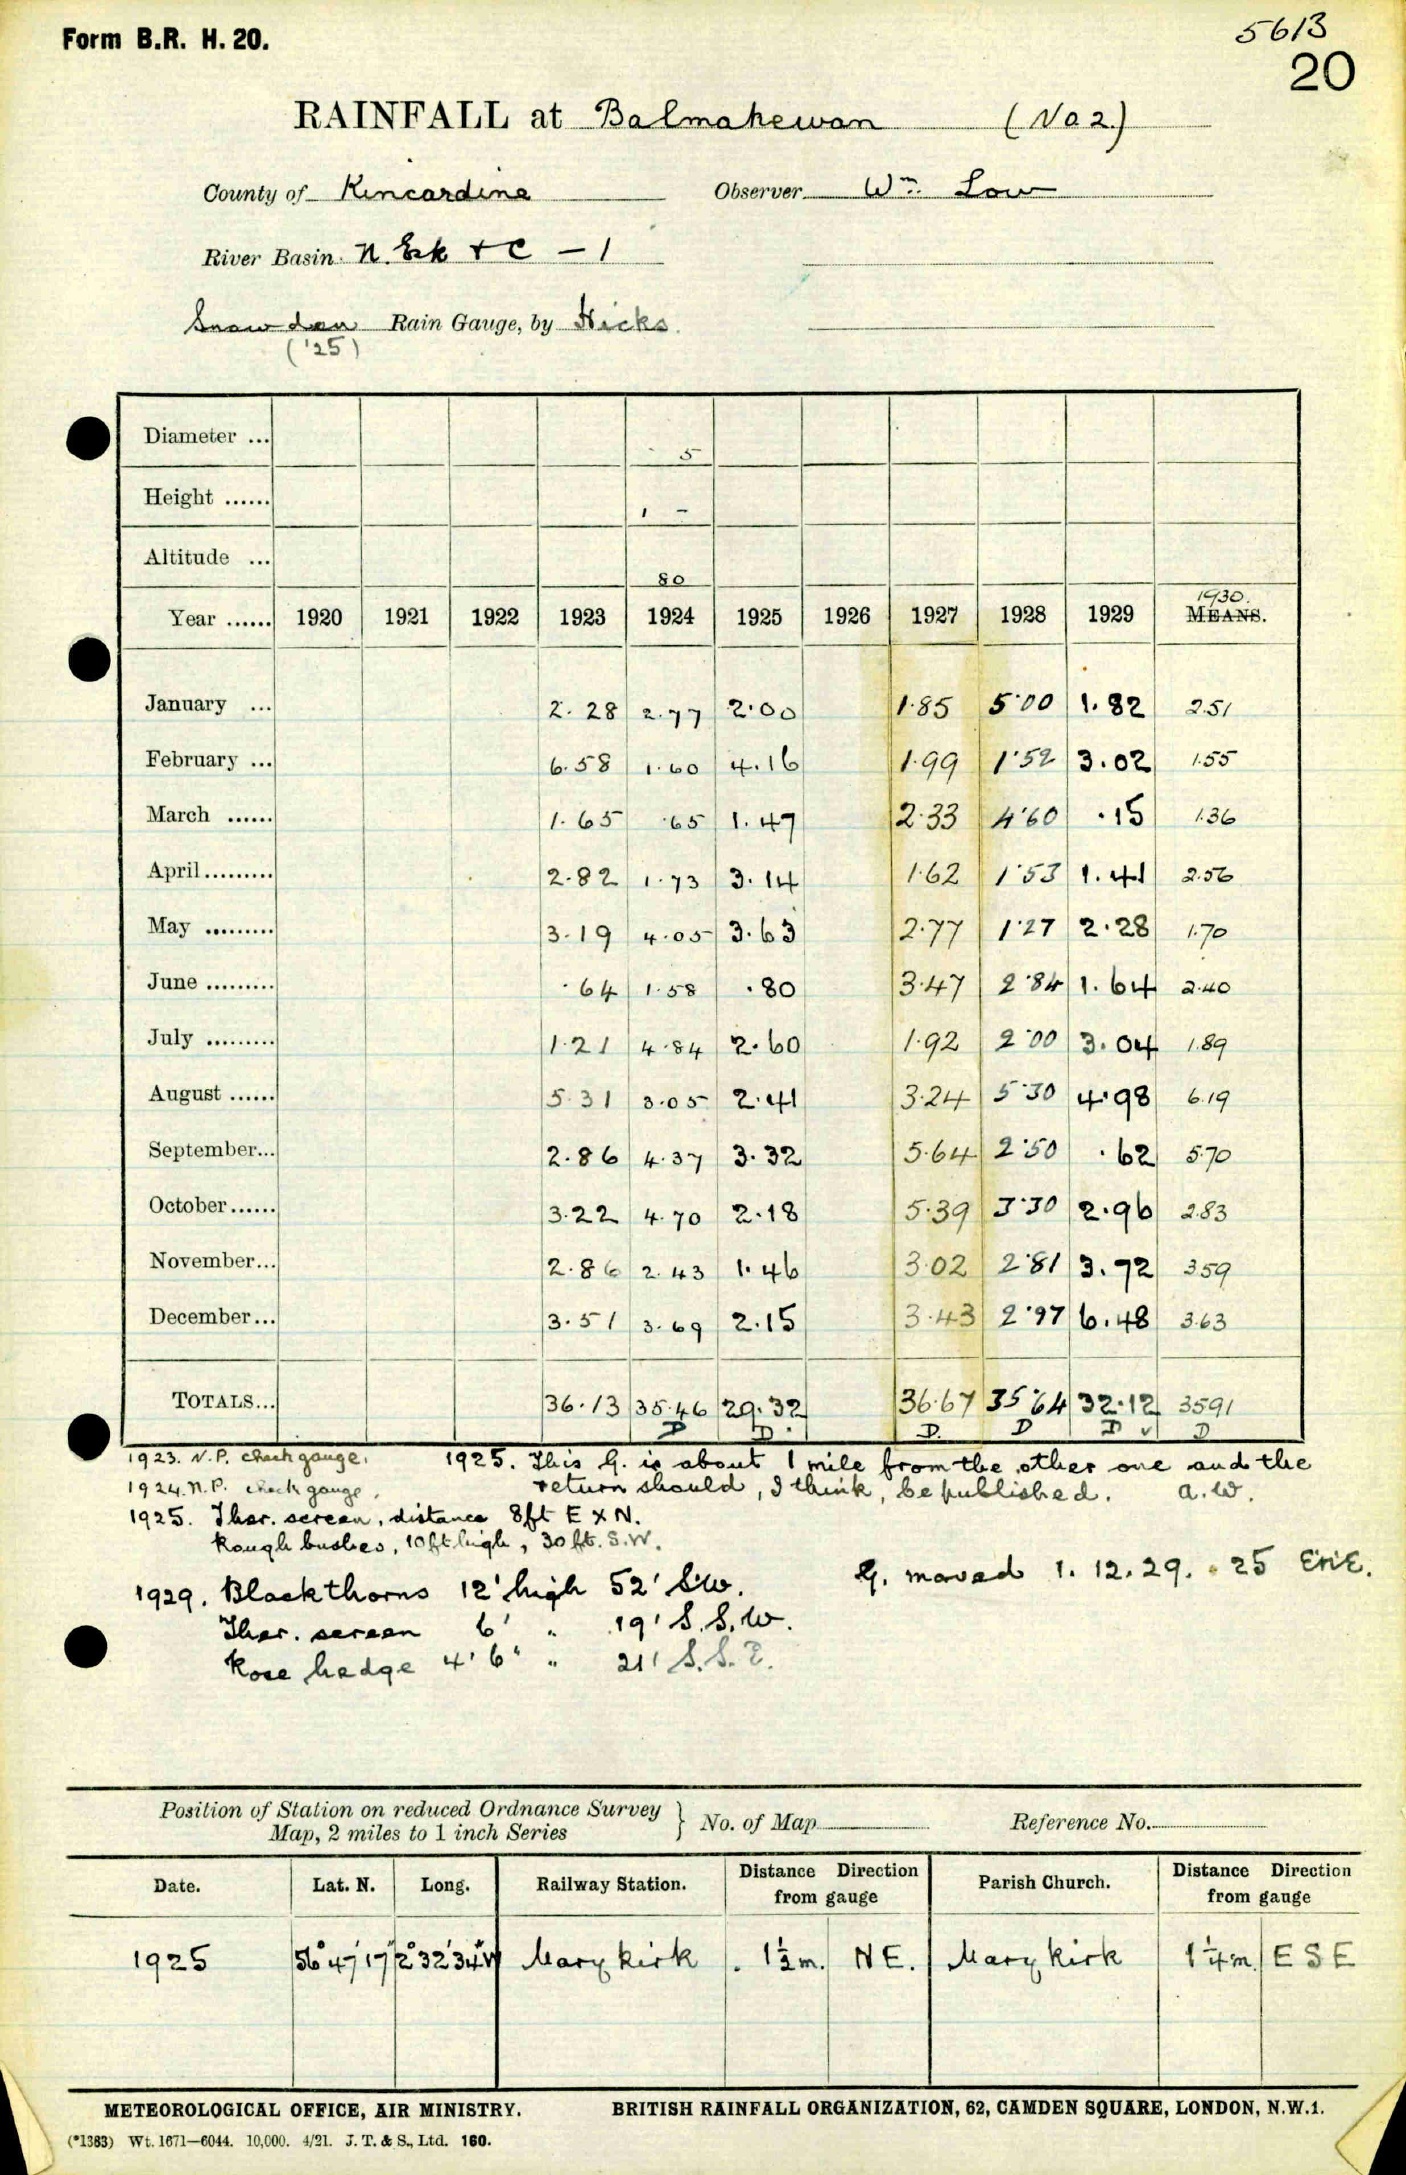 Form B.R. H. 20.
5613
20
RAINFALL at Balmakewan (No 2.)
County of Kincardine Observer Wm. Low
River Basin N. Esk + C — 1
Snowdon Rain Gauge, by Hicks.
('25)
Diameter ... 5
Height ...... 1 -
Altitude ... 80
1930.
Year ...... 1920 1921 1922 1923 1924 1925 1926 1927 1928 1929 MEANS.
January ... 2.28 2.77 2.00 1.85 5.00 1.82 2.51
February ... 6.58 1.60 4.16 1.99 1.52 3.02 1.55
March ...... 1.65 .65 1.47 2.33 4.60 .15 1.36
April......... 2.82 1.73 3.14 1.62 1.53 1.41 2.56
May ......... 3.19 4.05 3.63 2.77 1.27 2.28 1.70
June ......... .64 1.58 .80 3.47 2.84 1.64 2.40
July ......... 1.21 4.84 2.60 1.92 2.00 3.04 1.89
August ...... 5.31 3.05 2.41 3.24 5.30 4.98 6.19
September... 2.86 4.37 3.32 5.64 2.50 .62 5.70
October...... 3.22 4.70 2.18 5.39 3.30 2.96 2.83
November... 2.86 2.43 1.46 3.02 2.81 3.72 3.59
December... 3.51 3.69 2.15 3.43 2.97 6.48 3.63
TOTALS... 36.13 35.46 29.32 36.67 35.64 32.12 35.91
D D. D. D D ✓ D
1923. N.P. check gauge. 1925. This G. is about 1 mile from the other one and the
1924. N.P. check gauge. return should, I think, be published. a.w.
1925. Ther. screen, distance 8ft E X N.
Rough bushes, 10ft high, 30 ft. S.W.
G. moved 1. 12. 29. 25 ENE.
1929. Blackthorns 12' high 52' SW.
Ther. screen 6' " 19' S.S.W.
Rose hedge 4' 6" " 21' S.S.E.
Position of Station on reduced Ordnance Survey
Map, 2 miles to 1 inch Series } No. of Map Reference No.
Date. Lat. N. Long. Railway Station. Distance Direction from gauge Parish Church. Distance Direction from gauge
1925 56° 47' 17" 2° 32' 34" W Marykirk 1½ m. NE. Marykirk 1¼ m. ESE
METEOROLOGICAL OFFICE, AIR MINISTRY. BRITISH RAINFALL ORGANIZATION, 62, CAMDEN SQUARE, LONDON, N.W.1.
(*1383) Wt. 1671—6044. 10,000. 4/21. J. T. & S., Ltd. 160.